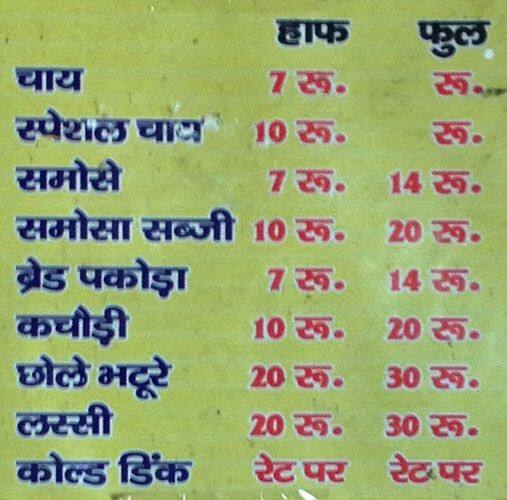 हाफ फुल
चाय 7 रू. रू.
स्पेशल चाय 10 रू. रू.
समोसे 7 रू. 14 रू.
समोसा सब्जी 10 रू. 20 रू.
ब्रेड पकोड़ा 7 रू. 14 रू.
कचौड़ी 10 रू. 20 रू.
छोले भटूरे 20 रू. 30 रू.
लस्सी 20 रू. 30 रू.
कोल्ड डिंक रेट पर रेट पर